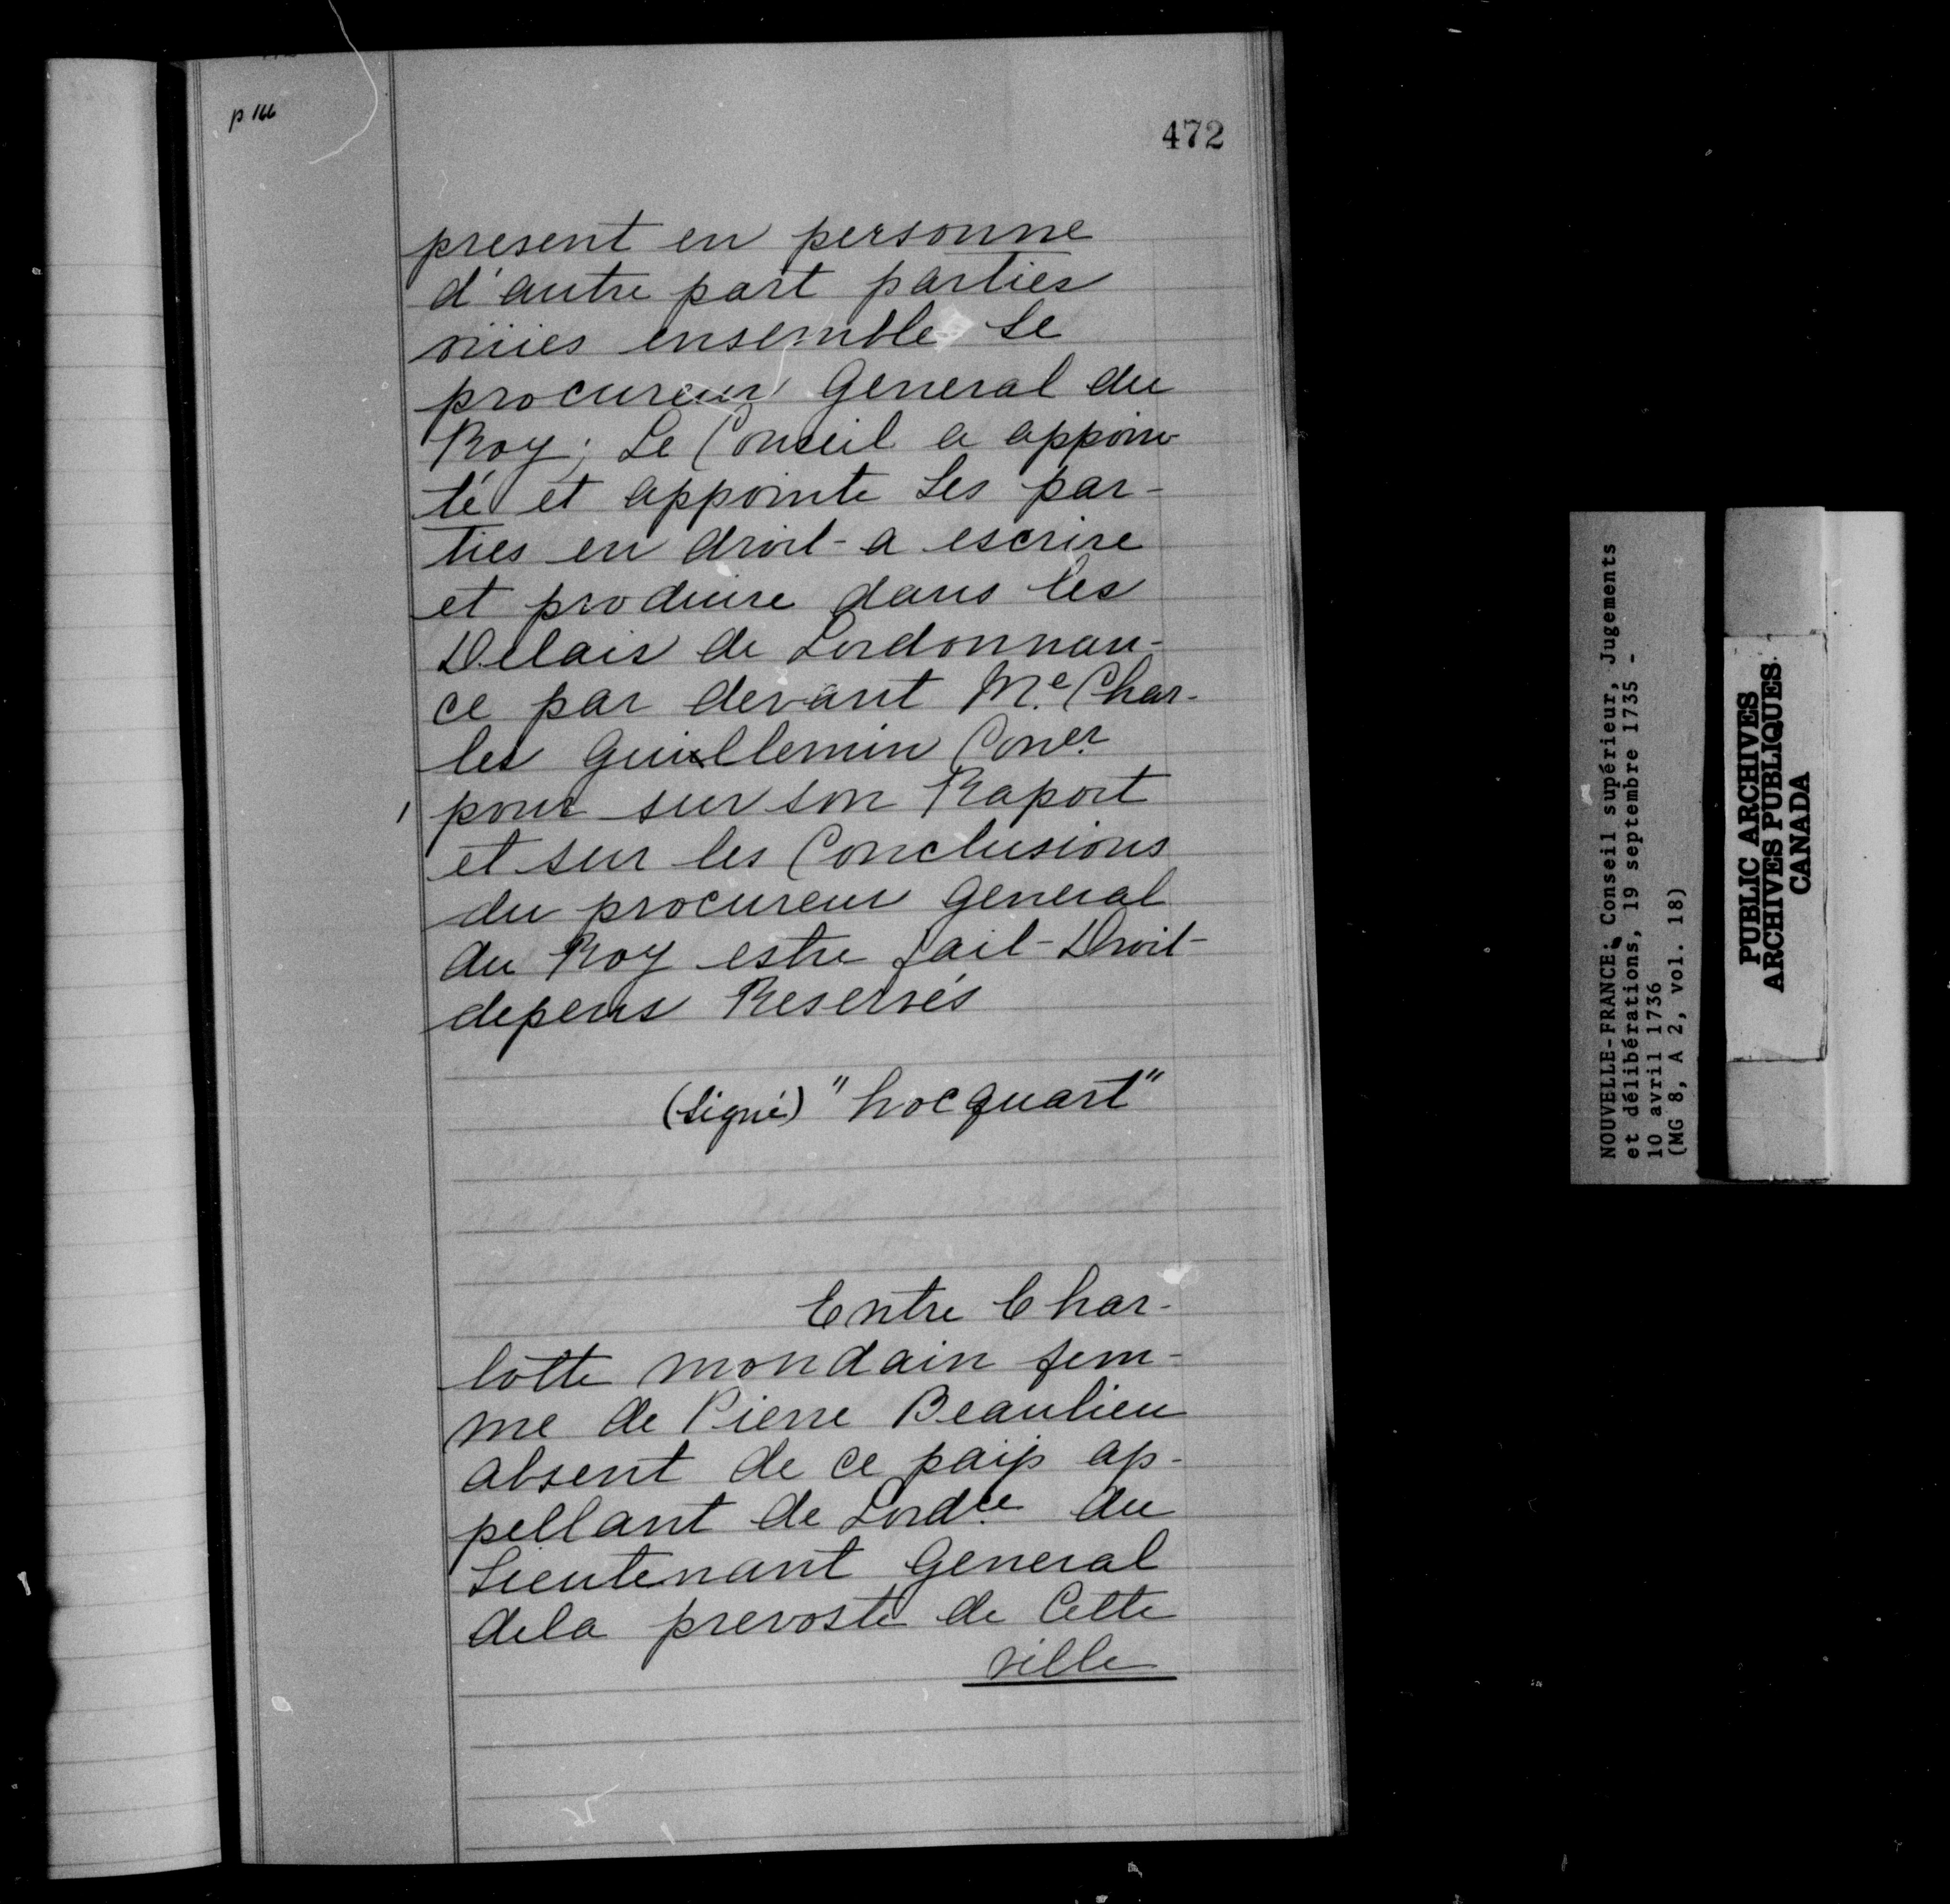 p 166
472
present en personne
d'autre part parties
oüies ensemble Le
procureur General du
Roy; Le Conseil a appoin-
té et appointe Les par-
ties en droit a escrire
et produire dans les
Delais de Lordonnan-
ce par devant Me. Char-
les Guillemin Coner.
pour sur son Raport
et sur les Conclusions
du procureur General
du Roy estre fait Droit
depens Reservés
(Signé) "hocquart"
Entre Char-
lotte mondain fem-
me de Pierre Beaulieu
absent de ce païs ap-
pellant de Lordce. du
Lieutenant General
dela prevosté de Cette
ville
NOUVELLE-FRANCE: Conseil supérieur, Jugements
et délibérations, 19 septembre 1735 -
10 avril 1736
(MG 8, A 2, vol. 18)
PUBLIC ARCHIVES
ARCHIVES PUBLIQUES
CANADA